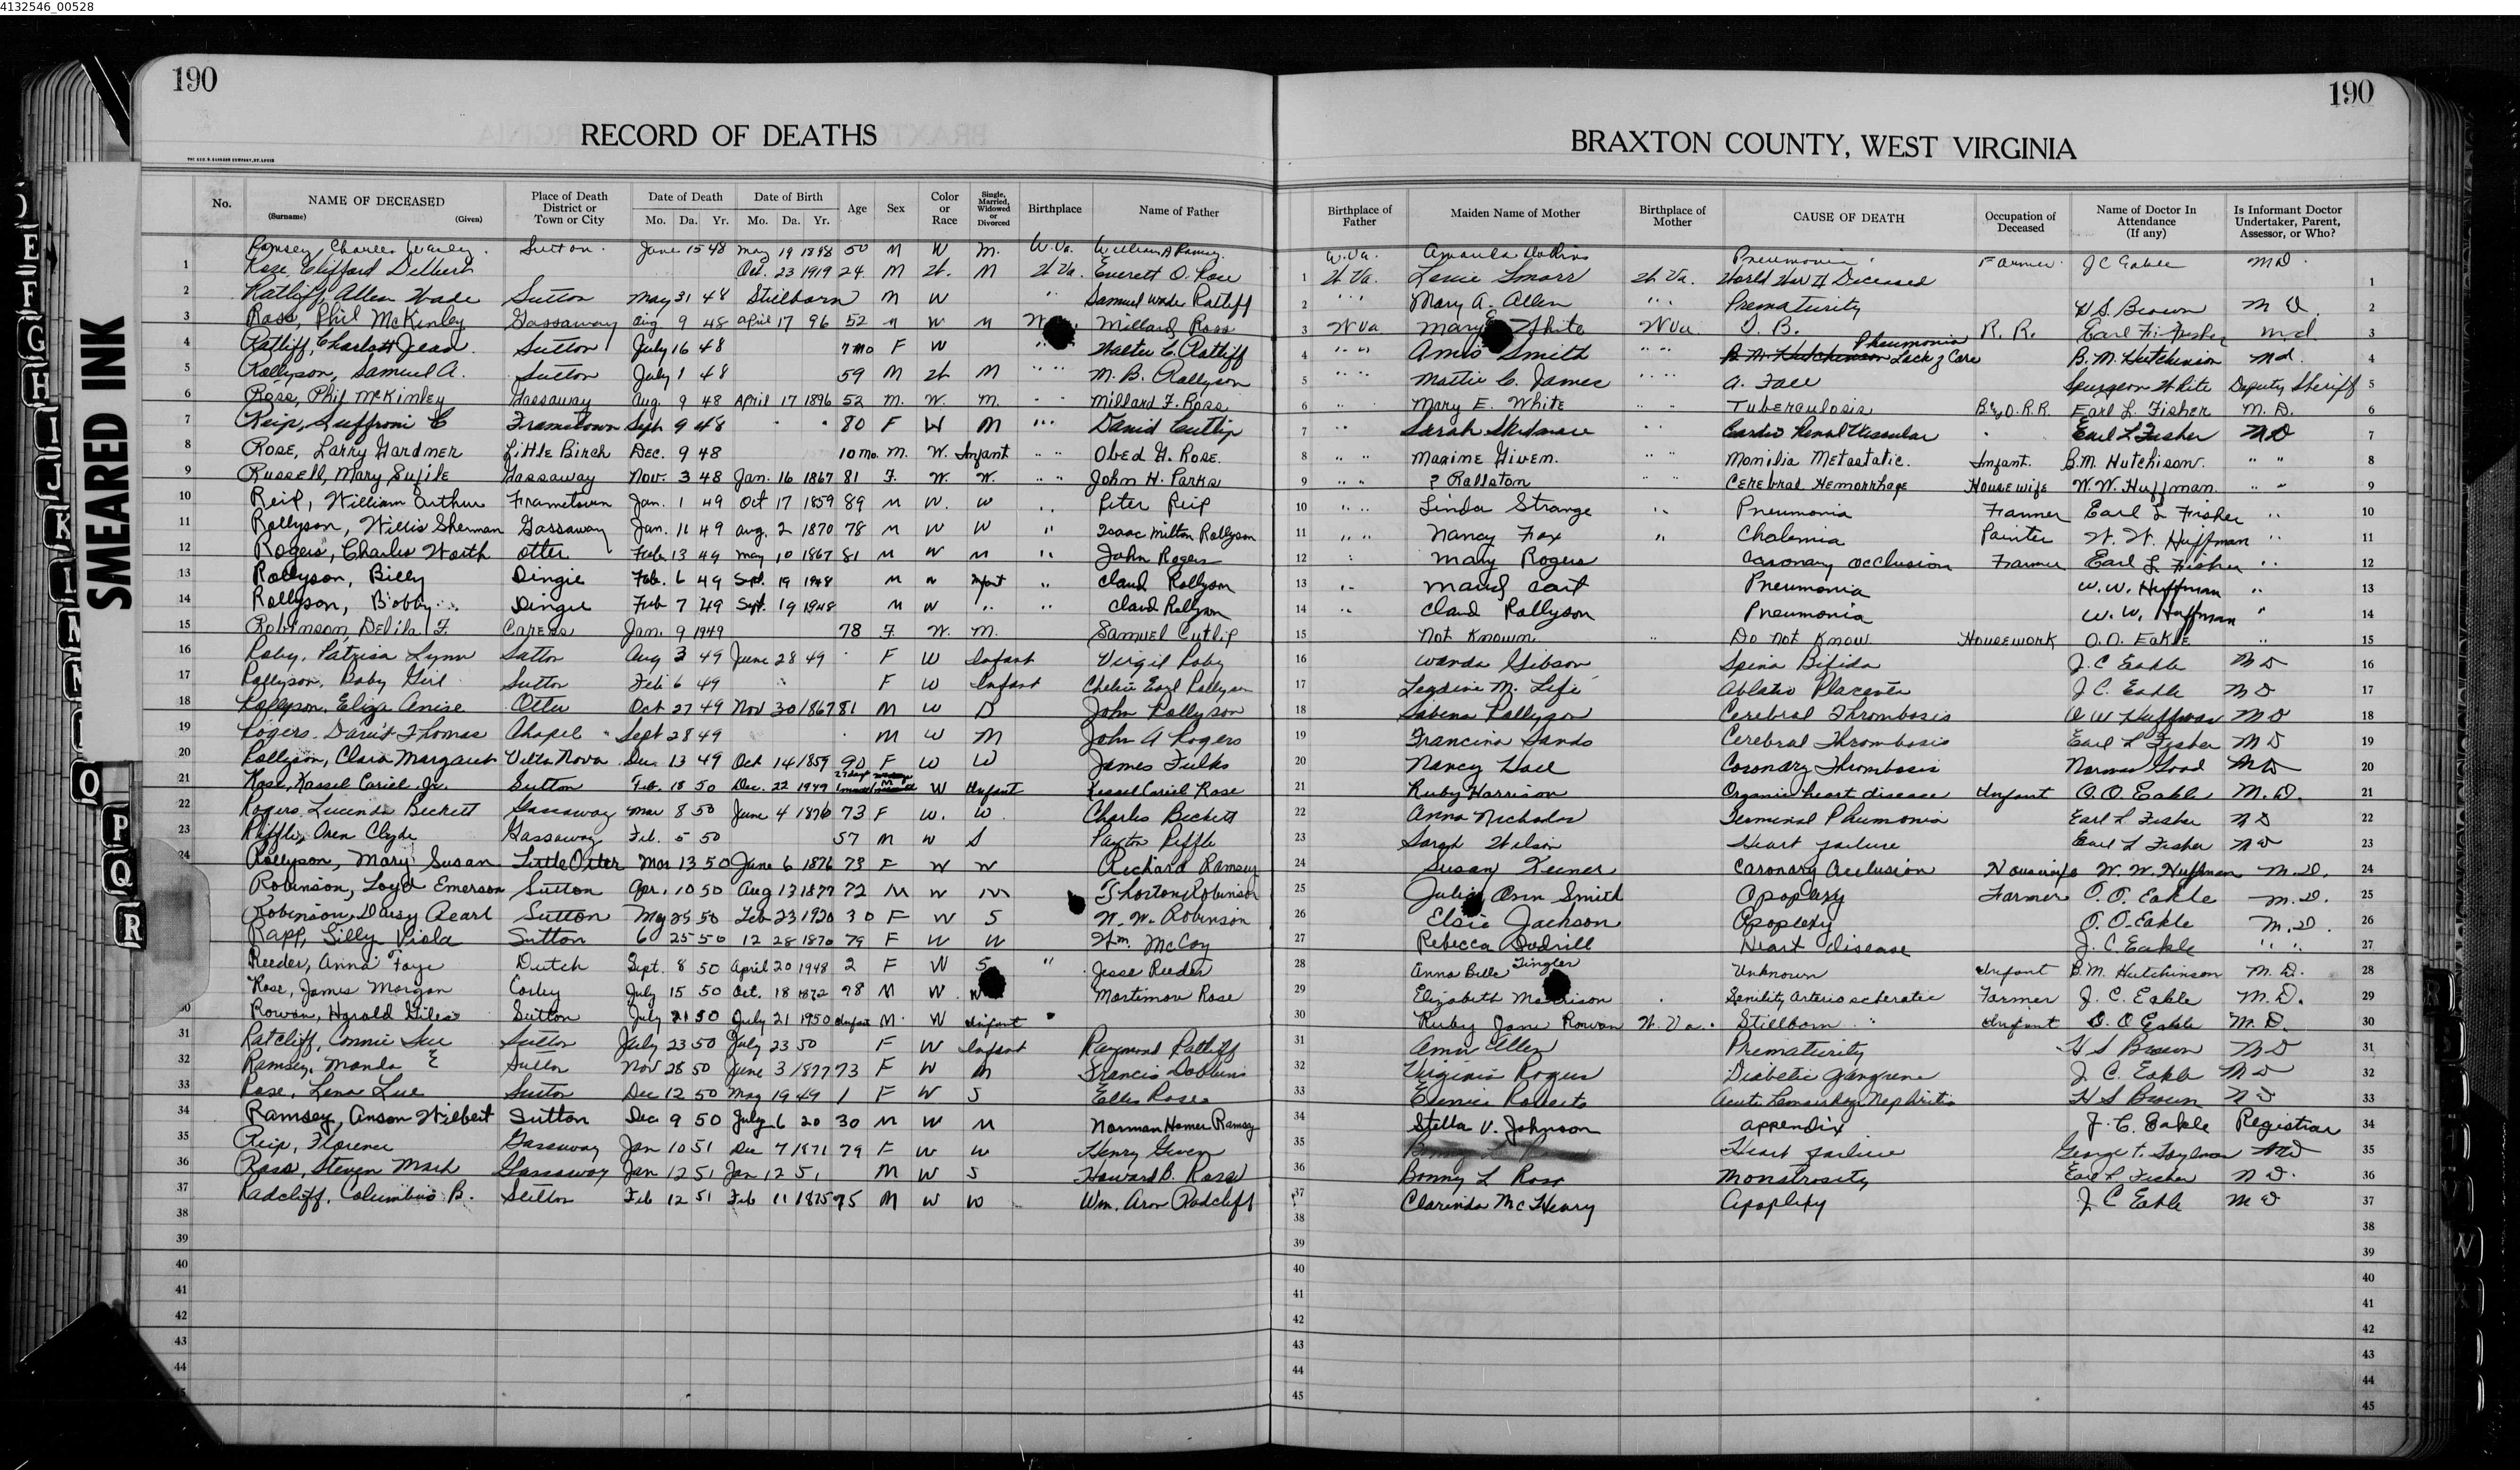 4132546_00528
190
190
RECORD OF DEATHS
BRAXTON COUNTY, WEST VIRGINIA
SMEARED INK
No. NAME OF DECEASED (Surname) (Given) Place of Death District or Town or City Date of Death Mo. Da. Yr. Date of Birth Mo. Da. Yr. Age Sex Color or Race Single, Married, Widowed or Divorced Birthplace Name of Father Birthplace of Father Maiden Name of Mother Birthplace of Mother CAUSE OF DEATH Occupation of Deceased Name of Doctor In Attendance (If any) Is Informant Doctor Undertaker, Parent, Assessor, or Who?
Ramsey, Charles Sutton. June 15 48 May 19 1898 50 M W M. W.Va. William A Ramsey. W.Va. Amanda Pneumonia Farmer. J C Eakle MD.
1 Rose, Clifford Delbert Oct. 23 1919 24. M W. M W Va. Everett O. Rose 1 W Va. W Va. World War II Deceased 1
2 Ratliff, Allen Wade Sutton May 31 48 Stillborn M W " Samuel Wade Ratliff 2 " " Mary A. Allen " " Prematurity H S. Brown M D. 2
3 Ross, Phil McKinley Gassaway Aug. 9 48 April 17 96 52 M W M Millard Ross 3 W Va Mary E White W Va T. B. R. R. Earl L. Fisher M.d. 3
4 Ratliff, Charlott Jean. Sutton July 16 48 7 mo F W " Walter C. Ratliff 4 " " Amis Smith " " B. M. Hutchinson Lack of Care Pheumonia B. M. Hutchinson Md. 4
5 Rollyson, Samuel A. Sutton July 1 48 59 M W M " " M. B. Rollyson 5 " " Mattie C. James " " A. Fall Spurgeon White Deputy Sheriff 5
6 Ross, Phil McKinley Gassaway Aug. 9 48 April 17 1896 52 M. W. M. " " Millard F. Ross 6 " " Mary E. White " " Tuberculosis B. & O. R.R. Earl L. Fisher M. D. 6
7 Reip, Suffroni C Frametown Sept 9 48 80 F W M " " David Cutlip 7 " " Sarah Skidmore " " Cardio Renal Vascular Earl L Fisher MD 7
8 Rose, Larry Gardner Little Birch Dec. 9 48 10 mo. M. W. Infant " " Obed G. Rose. 8 " " Maxine Given. " " Monilia Metastatic. Infant. B.M. Hutchison. " " 8
9 Russell, Mary Sufile Gassaway Nov. 3 48 Jan. 16 1867 81 F. W. W. " " John H. Parks 9 " " ? Rallston " " Cerebral Hemorrhage Housewife W.W. Huffman. " " 9
10 Reip, William Arthur Frametown Jan. 1 49 Oct 17 1859 89 M W. W " Peter Reip 10 " " Linda Strange " Pneumonia Farmer Earl L Fisher " 10
11 Rollyson, Willis Sherman Gassaway Jan. 11 49 Aug. 2 1870 78 M W W " Isaac Milton Rollyson 11 " " Nancy Fox " Cholemia Painter W. W. Huffman " 11
12 Rogers, Charles Worth Otter Feb. 13 49 May 10 1867 81 M W M " John Rogers 12 " Mary Rogers Coronary Occlusion Farmer Earl L Fisher " 12
13 Rollyson, Billy Dingie Feb. 6 49 Sept. 19 1948 M W Infant " Claud Rollyson 13 " Maud Cart Pneumonia W. W. Huffman " 13
14 Rollyson, Bobby Dingie Feb 7 49 Sept. 19 1948 M W " " Claud Rollyson 14 " Claud Rollyson Pneumonia W. W. Huffman " 14
15 Robinson, Delila F. Caress Jan. 9 1949 78 F. W. M. Samuel Cutlip 15 Not Known. " Do Not Know Housework O.O. Eakle " 15
16 Roby, Patrica Lynn Sutton Aug 3 49 June 28 49 F W Infant Virgil Roby 16 Wanda Gibson Spina Bifida J. C Eakle M D 16
17 Rollyson, Baby Girl Sutton Feb 6 49 F W Infant Earl Rollyson 17 M. Life Ablatio Placenta J C. Eakle M D 17
18 Rollyson, Eliza Anise Otter Oct 27 49 Nov 30 1867 81 M W D John Rollyson 18 Sabena Rollyson Cerebral Thrombosis W W Huffman M D 18
19 Rogers. David Thomas Chapel Sept 28 49 M W M John A Rogers 19 Francina Sands Cerebral Thrombosis Earl L Fisher M D 19
20 Rollyson, Clara Margaret Villa Nova Dec 13 49 Oct 14 1859 90 F W W James Fulks 20 Nancy Hall Coronary Thrombosis Norman Good M D 20
21 Rose, Kassel Cariel Jr. Sutton Feb. 18 50 Dec. 22 1949 W Infant Kessel Cariel Rose 21 Ruby Harrison Organic heart disease Infant O. O. Eakle M. D. 21
22 Rogers, Lucinda Beckett Gassaway Mar 8 50 June 4 1876 73 F W. W. Charles Beckett 22 Anna Nicholas Terminal Pheumonia Earl L Fisher M D 22
23 Riffle, Oren Clyde Gassaway Feb. 5 50 57 M W S Payton Riffle 23 Sarah Wilson Heart failure Earl L Fisher M D 23
24 Rollyson, Mary Susan Little Otter Mar 13 50 June 6 1876 73 F W W Richard Ramsey 24 Susan Keener Coronary Occlusion Housewife W. W. Huffman M.D. 24
Robinson, Loyd Emerson Sutton Apr. 10 50 Aug 13 1877 72 M W M Thorton Robinson 25 Julia Ann Smith Apoplexy Farmer O. O. Eakle M.D. 25
Robinson, Daisy Pearl Sutton May 25 50 Feb 23 1920 30 F W S W. W. Robinson 26 Elsie Jackson Apoplexy O. O. Eakle M.D. 26
Rapp, Lilly Viola Sutton 6 25 50 12 28 1870 79 F W W Wm. McCoy 27 Rebecca Dodrill Heart disease J. C. Eakle " " 27
Reeder, Anna Faye Dutch Sept. 8 50 April 20 1948 2 F W S " Jesse Reeder 28 Anna Belle Tingler Unknown Infant B.M. Hutchinson M. D. 28
Rose, James Morgan Corley July 15 50 Oct. 18 1872 98 M W. Mortimore Rose 29 Elizabeth Morrison Senility Arterio scleratic Farmer J. C. Eakle M. D. 29
30 Rowan, Harold Giles Sutton July 21 50 July 21 1950 Infant M W Infant " 30 Ruby Jane Rowan W. Va. Stillborn Infant O. O Eakle M. D. 30
31 Ratcliff, Connie Sue Sutton July 23 50 July 23 50 F W Infant Raymond Ratliff 31 Allen Prematurity H S Brown M D 31
32 Ramsey, Manda E Sutton Nov 28 50 June 3 1877 73 F W M Francis Dobbins 32 Virginia Rogers Diabetic Gangrene J. C. Eakle M D 32
33 Rose, Lena Lue Sutton Dec 12 50 May 19 49 1 F W S Ellis Rose 33 Roberts Acute Nephritis H S Brown M D 33
34 Ramsey, Anson Wilbert Sutton Dec 9 50 July 6 20 30 M W M Norman Homer Ramsey 34 Stella V. Johnson Appendix J. C. Eakle Registrar 34
35 Reip, Florence Gassaway Jan 10 51 Dec 7 1871 79 F W W Henry Given 35 Heart failure George M D 35
36 Ross, Steven Mark Gassaway Jan 12 51 Jan 12 51 M W S Howard B. Ross 36 Bonny L Ross Monstrosity Earl L Fisher M D. 36
37 Radcliff, Columbus B. Sutton Feb 12 51 Feb 11 1875 75 M W W Wm. Aron Radcliff 37 Clarinda McHenry Apoplexy J C Eakle M D 37
38 38 38
39 39 39
40 40 40
41 41 41
42 42 42
43 43 43
44 44 44
45 45